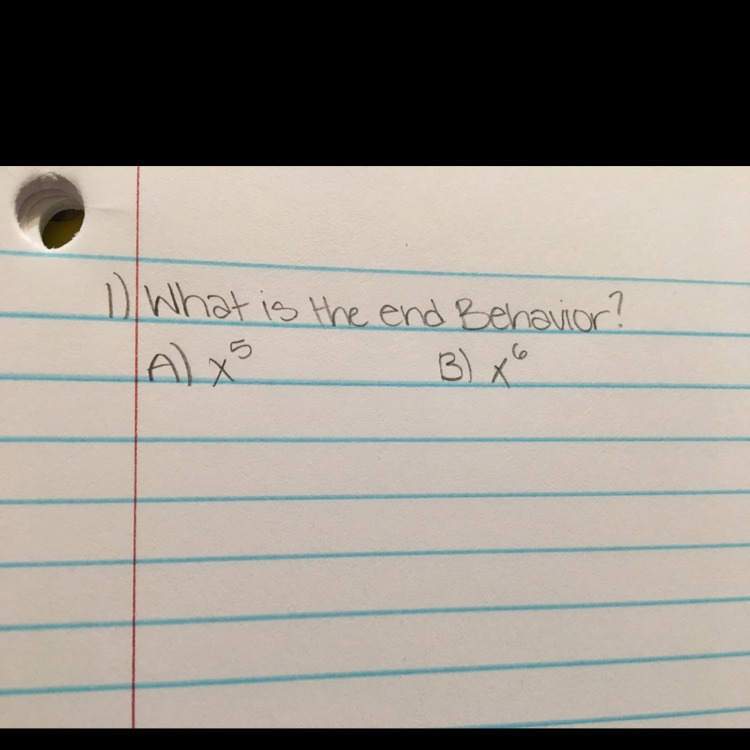 1) What is the end Behavior?
A) x⁵ B) x⁶